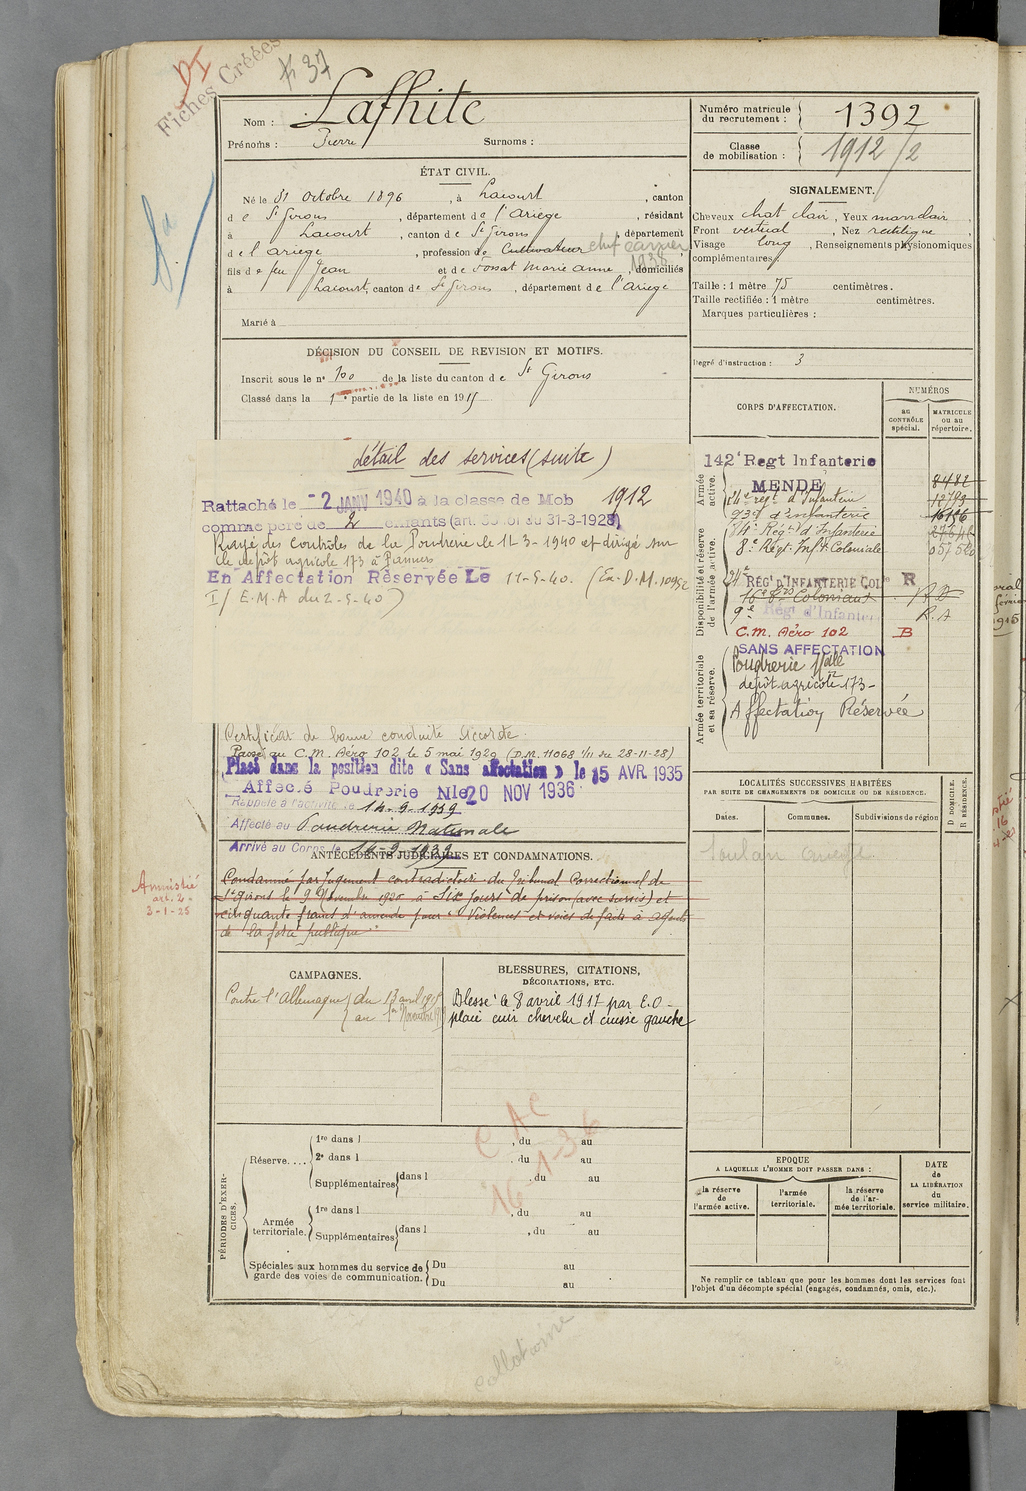 DI
Fiches Créées
37
Nom : Lafhite
Prénoms : Pierre Surnoms :
Numéro matricule du recrutement : 1392
Classe de mobilisation : 1912/2
ÉTAT CIVIL.
Né le 31 octobre 1896, à Lacourt, canton
de St Girons, département de l'Ariège, résidant
à Lacourt, canton de St Girons, département
de l'ariège, profession de Cultivateur chef carrier 1938
fils de feu Jean et de Fossat Marie anne, domiciliés
à Lacourt, canton de St Girons, département de l'ariège
Marié à
SIGNALEMENT.
Cheveux chat clair, Yeux marr clair
Front vertical, Nez rectiligne
Visage long, Renseignements physionomiques
complémentaires :
Taille : 1 mètre 75 centimètres.
Taille rectifiée : 1 mètre centimètres.
Marques particulières :
Degré d'instruction : 3
DÉCISION DU CONSEIL DE REVISION ET MOTIFS.
Inscrit sous le n° 100 de la liste du canton de St Girons
Classé dans la 1re partie de la liste en 1915
détail des services (suite)
Rattaché le -2 JANV 1940 à la classe de Mob 1912
comme père de 2 enfants (art. 58 loi du 31-3-1928)
Rayé des Contrôles de la Poudrerie le 11-3-1940 et dirigé sur
le dépôt agricole 173 à Pamiers
En Affectation Réservée Le 11-5-40. (Ex. D.M. 1095c
I/ E.M.A du 2-5-40)
Certificat de bonne conduite Accordé.
Passé au C.M. Aéro 102 le 5 mai 1929 (D.M. 11068 1/11 du 28-11-28)
Placé dans la position dite « Sans affectation » le 15 AVR 1935
Affecté Poudrerie Nle 20 NOV 1936
Rappelé à l'activité le 14-9-1939
Affecté au Poudrerie Nationale
Arrivé au Corps le 14-9-1939
CORPS D'AFFECTATION.
NUMÉROS
AU CONTRÔLE spécial.
MATRICULE OU AU répertoire.
Armée active.
142e Regt Infanterie
MENDE 8482
14e régt d'Infanterie 12793
93e d'infanterie 16196
Disponibilité et réserve de l'armée active.
84e Régt d'Infanterie
8e Régt. Inf. Coloniale 057580
24e RÉG. D'INFANTERIE COLle R
16e Bon Coloniaux
9e Régt d'Infant R.A
C.M. Aéro 102 B
SANS AFFECTATION
Armée territoriale et sa réserve.
Poudrerie Nalle
dépôt agricole 173-
Affectation Réservée
LOCALITÉS SUCCESSIVES HABITÉES
PAR SUITE DE CHANGEMENTS DE DOMICILE OU DE RÉSIDENCE.
Dates.
Communes.
Subdivisions de région
D DOMICILE.
R RÉSIDENCE.
Amnistié
art. 2-
3-1-25
ANTÉCÉDENTS JUDICIAIRES ET CONDAMNATIONS.
Condamné par Jugement contradictoire du Tribunal Correctionnel de
St girons le 9 Novembre 1920 à Six jours de prison (avec sursis) et
cinquante francs d'amende pour "Violences et voies de faits à agents
de la force publique"
CAMPAGNES.
Contre l'Allemagne { du 13 avril 1915
{ au 1er Novembre
BLESSURES, CITATIONS,
DÉCORATIONS, ETC.
Blessé le 8 avril 1917 par E.O-
plaie cuir chevelu et cuisse gauche
CAC
16-1-36
PÉRIODES D'EXERCICES.
Réserve....
1re dans l , du au
2e dans l , du au
Supplémentaires dans l , du au
Armée territoriale.
1re dans l , du au
Supplémentaires dans l , du au
Spéciales aux hommes du service de
garde des voies de communication.
Du au
Du au
EPOQUE
A LAQUELLE L'HOMME DOIT PASSER DANS :
la réserve de l'armée active.
l'armée territoriale.
la réserve de l'armée territoriale.
DATE
de
LA LIBÉRATION
du
service militaire.
Ne remplir ce tableau que pour les hommes dont les services font
l'objet d'un décompte spécial (engagés, condamnés, omis, etc.).